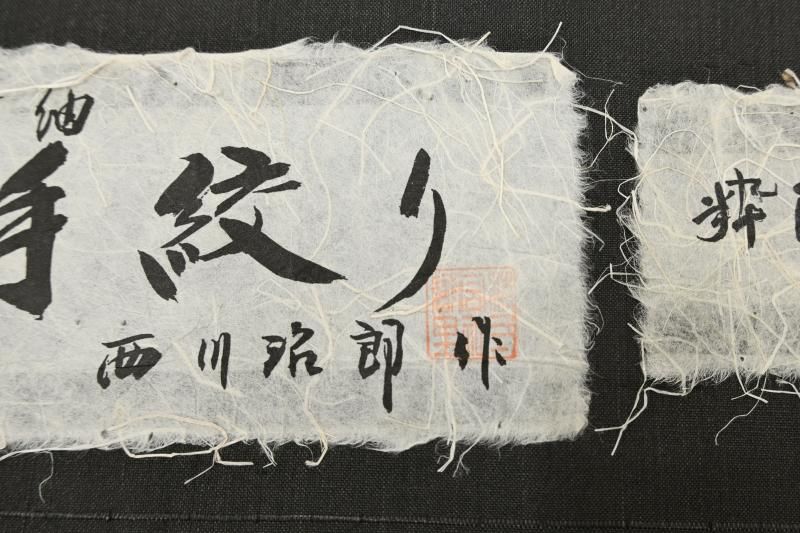 紬
手絞り
西川珆郎 作
粋